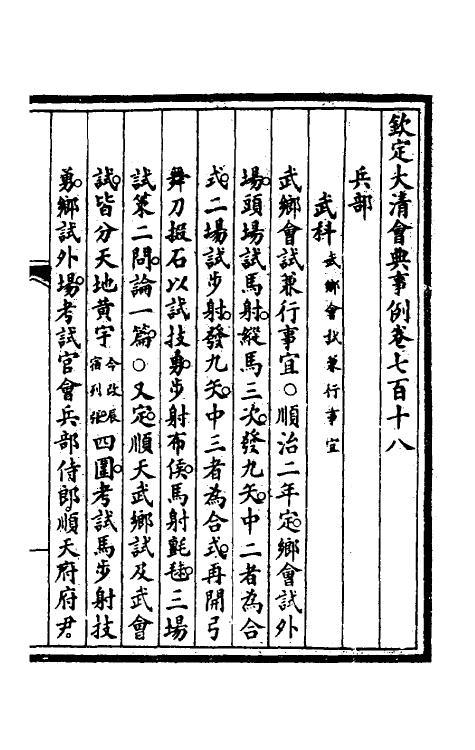 欽定大清會典事例卷七百十八
兵部
武科武鄉會試兼行事宜
武鄉會試兼行事宜○順治二年定。鄉會試外
場。頭場試馬射。縱馬三次。發九矢。中二者為合
式。二場試步射。發九矢。中三者為合式。再開弓
舞刀掇石以試技勇。步射布侯。馬射氈毬。三場
試策二問。論一篇。○又定。順天武鄉試及武會
試。皆分天地黃宇今改辰宿列張。四圍。考試馬步射技
勇。鄉試外場。考試官會兵部侍郎。順天府府尹。